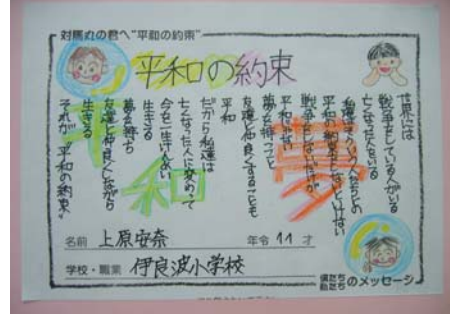 対馬丸の君へ"平和の約束"
平和の約束
世界には
戦争をしている人がいる
亡くなった人もいる
私達はそういう人たちとの
平和の約束をしないといけない
戦争をしないだけが
平和じゃない
夢を持つことも
友達と仲良くすることも
平和
だから私達は
亡くなった人に変わって
今を一生けんめい
生きる
夢を持ち
友達と仲良くしながら
生きる
それが"平和の約束"
平和
夢
名前 上原安奈
年令 11 才
学校・職業 伊良波小学校
僕たち
私たち のメッセージ